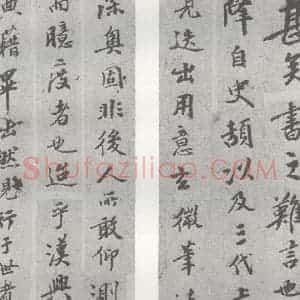 甚矣書之難言也
降自史頡以及三代
見迭出用意玄微筆
深奥固非後人所敢仰測
而臆度者也迨乎漢興
典籍畢出然見行于世者
Shufaziliao.com